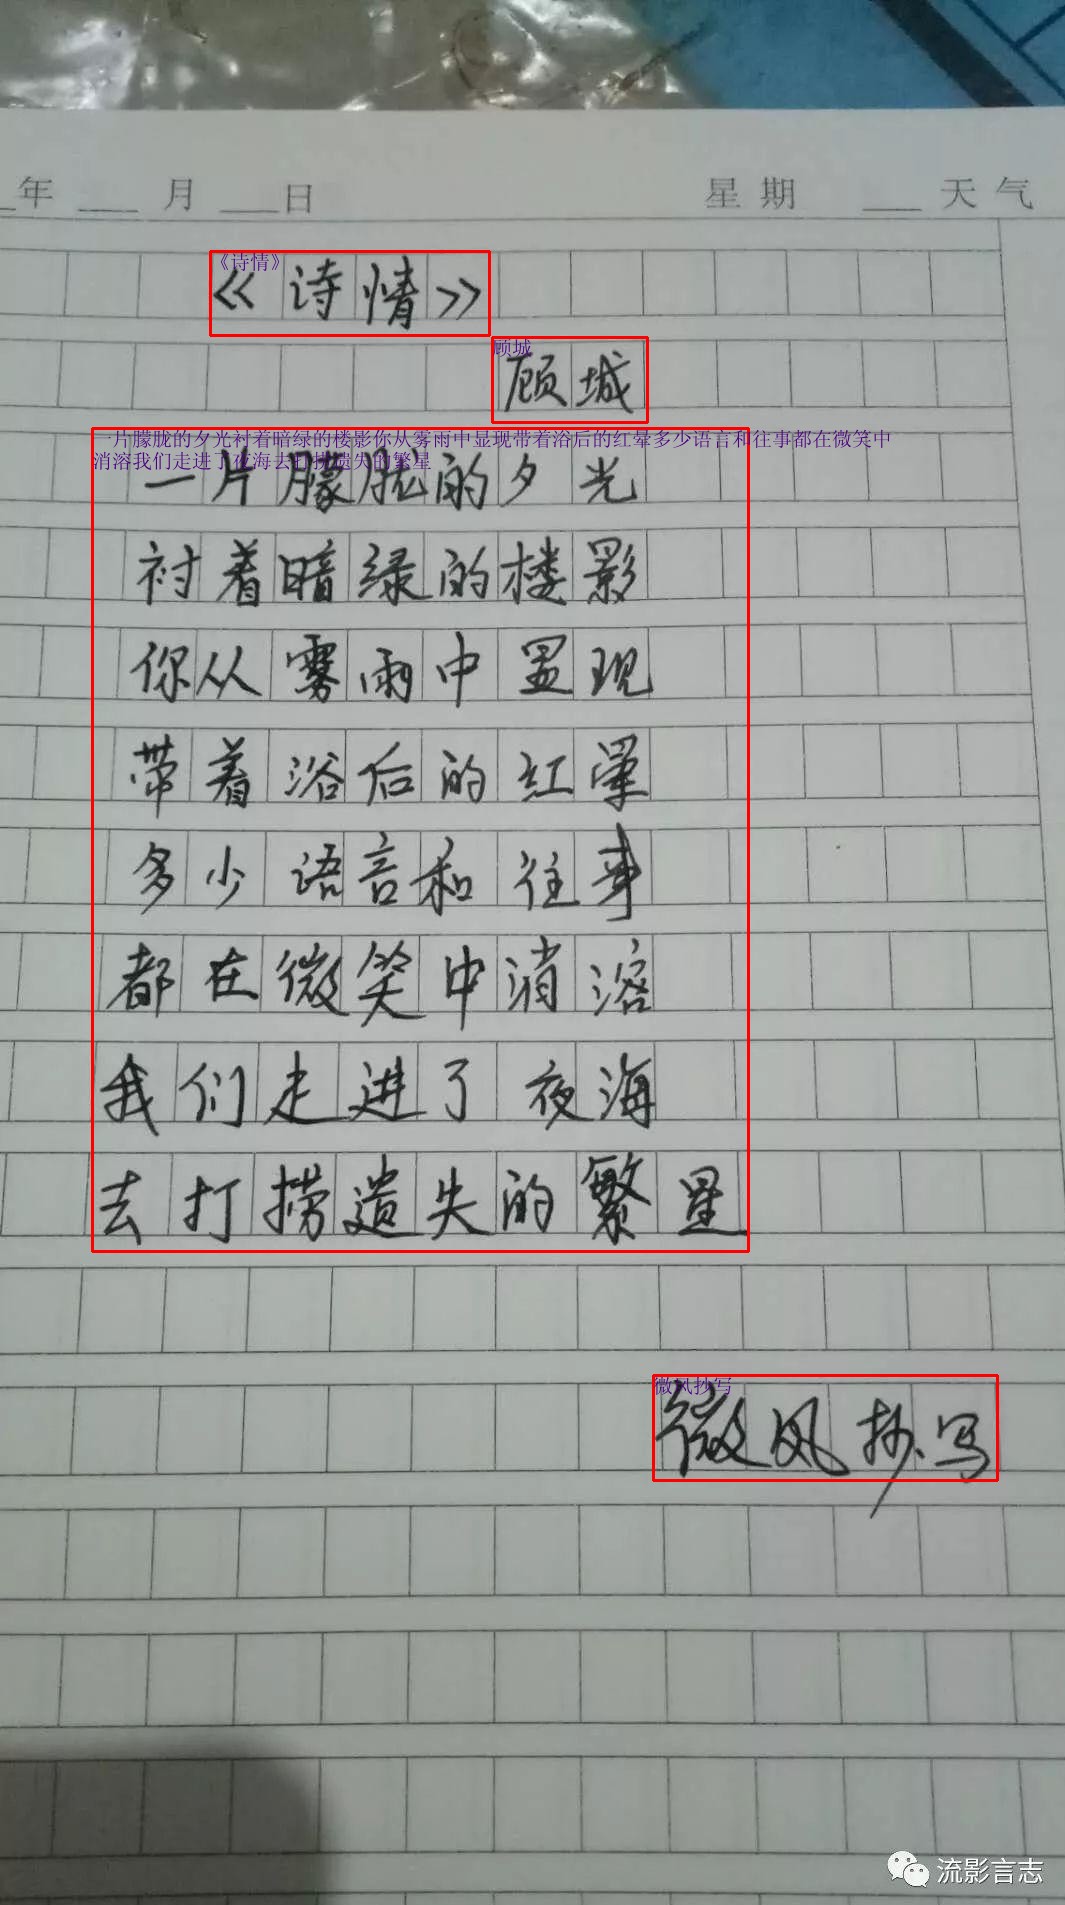 年 月 日 星期 天气
《诗情》
《诗情》
顾城
顾城
一片朦胧的夕光衬着暗绿的楼影你从雾雨中显现带着浴后的红晕多少语言和往事都在微笑中
消溶我们走进了夜海去打捞遗失的繁星
一片朦胧的夕光
衬着暗绿的楼影
你从雾雨中显现
带着浴后的红晕
多少语言和往事
都在微笑中消溶
我们走进了夜海
去打捞遗失的繁星
微风抄写
微风抄写
流影言志